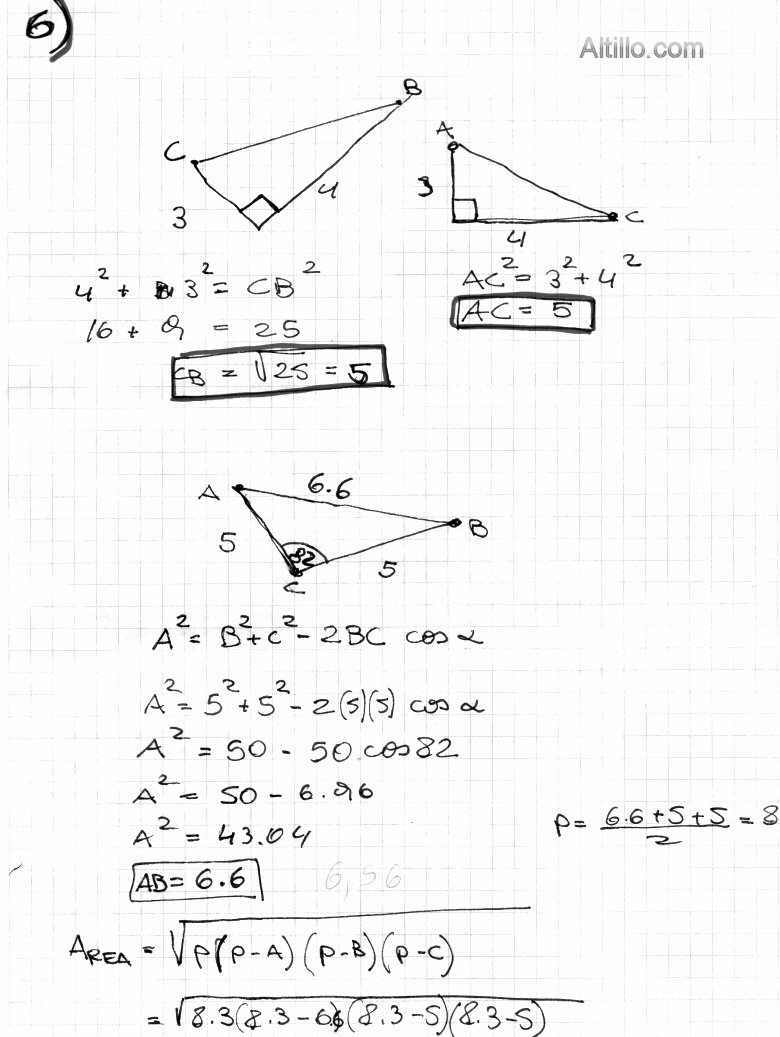 6)
Altillo.com
C B
3 4
A
3
C
4
4² + 3² = CB²
16 + 9 = 25
CB = √25 = 5
AC² = 3² + 4²
AC = 5
A 6.6
B
5 82 5
C
A² = B² + C² - 2BC cos α
A² = 5² + 5² - 2(5)(5) cos α
A² = 50 - 50.cos 82
A² = 50 - 6.96
A² = 43.04
AB = 6.6
6,56
P = (6.6 + 5 + 5)/2 = 8
AREA = √P(P-A)(P-B)(P-C)
= √8.3(8.3-6.6)(8.3-5)(8.3-5)